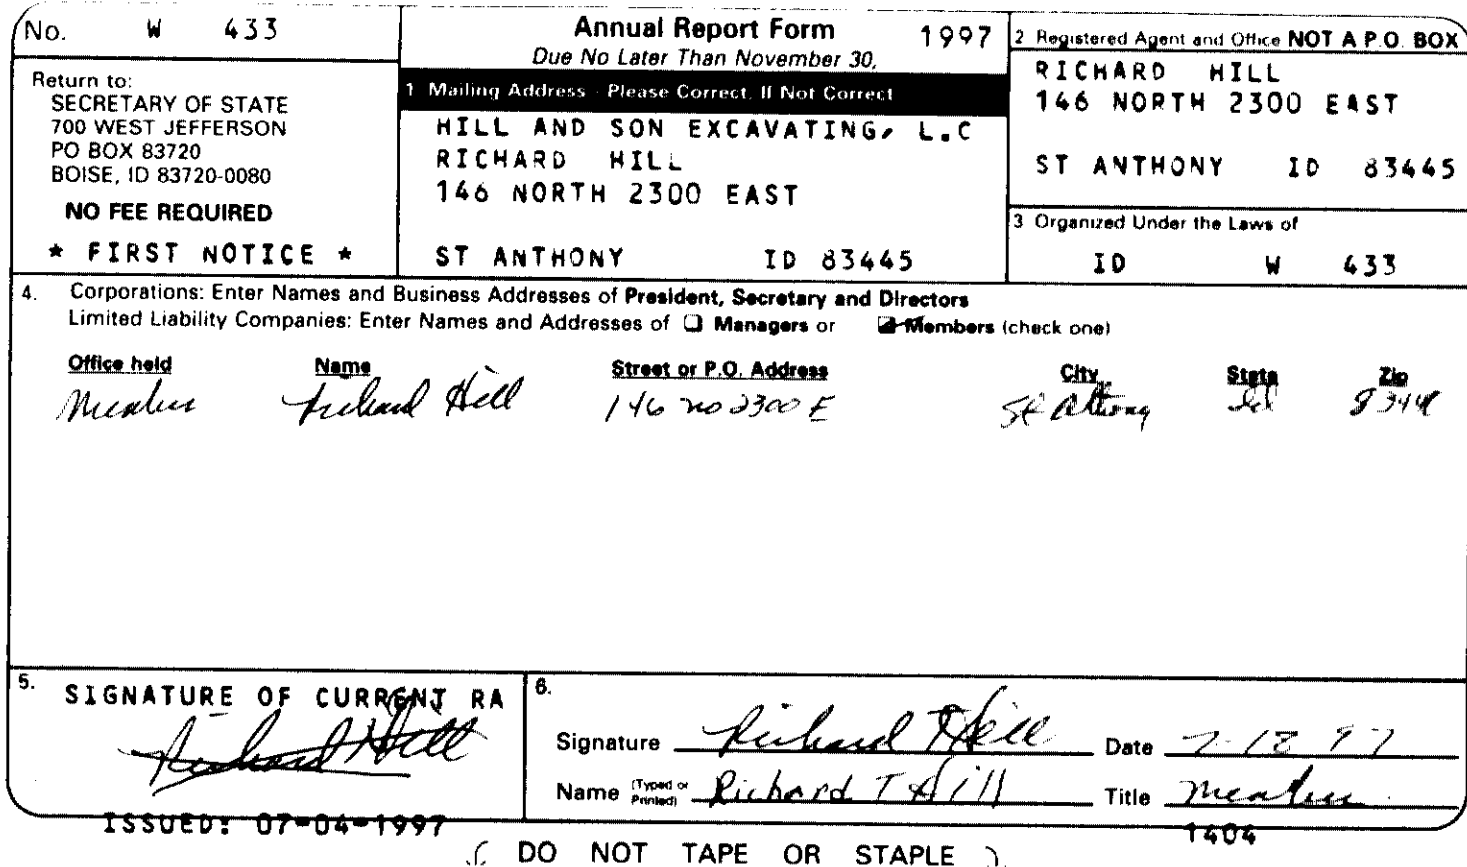 No. W 433
Annual Report Form 1997
Due No Later Than November 30,
Return to:
SECRETARY OF STATE
700 WEST JEFFERSON
PO BOX 83720
BOISE, ID 83720-0080
NO FEE REQUIRED
* FIRST NOTICE *
1 Mailing Address - Please Correct, If Not Correct
HILL AND SON EXCAVATING, L.C
RICHARD HILL
146 NORTH 2300 EAST
ST ANTHONY ID 83445
2 Registered Agent and Office NOT A P.O. BOX
RICHARD HILL
146 NORTH 2300 EAST
ST ANTHONY ID 83445
3 Organized Under the Laws of
ID W 433
4. Corporations: Enter Names and Business Addresses of President, Secretary and Directors
Limited Liability Companies: Enter Names and Addresses of Managers or Members (check one)
Office held Name Street or P.O. Address City State Zip
Member Richard Hill 146 no 2300 E St Anthony Id
5. SIGNATURE OF CURRENT RA
Richard Hill
6.
Signature Richard Hill Date 7-18 97
Name (Typed or Printed) Richard T Hill Title Member
ISSUED: 07-04-1997
1404
DO NOT TAPE OR STAPLE